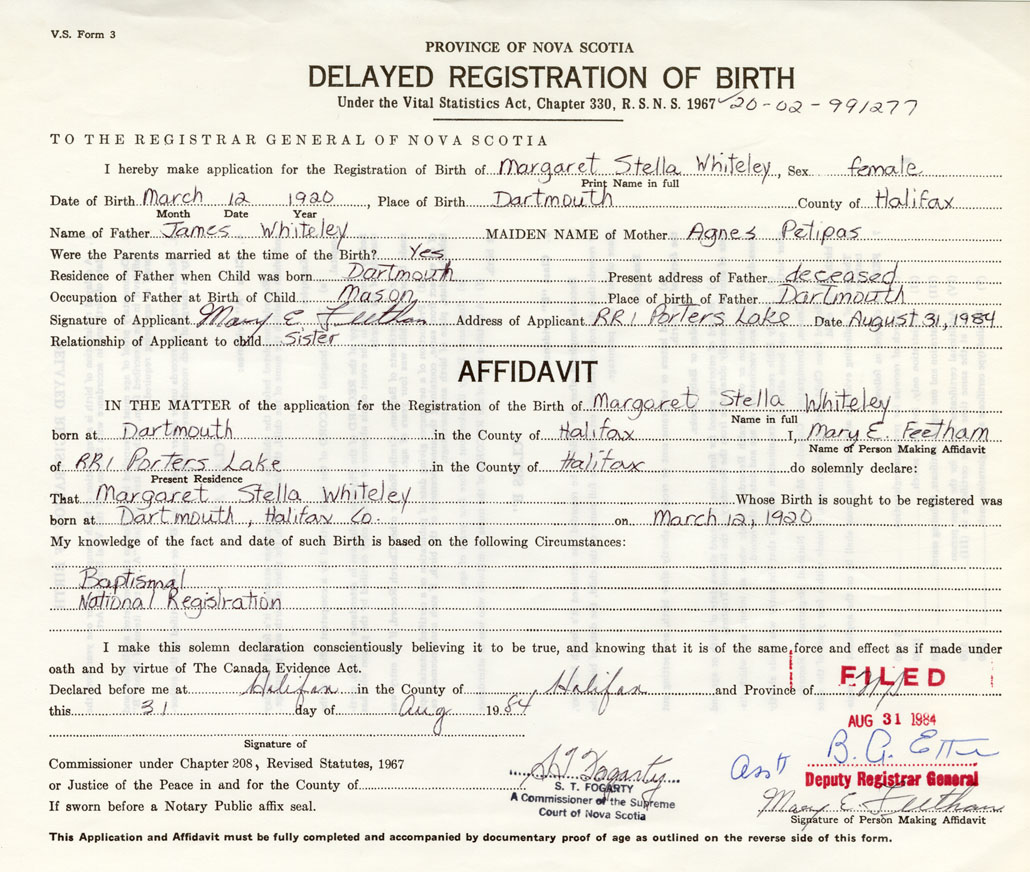 V.S. Form 3
PROVINCE OF NOVA SCOTIA
DELAYED REGISTRATION OF BIRTH
Under the Vital Statistics Act, Chapter 330, R.S.N.S. 1967 20-02-991277
TO THE REGISTRAR GENERAL OF NOVA SCOTIA
I hereby make application for the Registration of Birth of Margaret Stella Whiteley, Sex female
Print Name in full
Date of Birth March 12 1920, Place of Birth Dartmouth County of Halifax
Month Date Year
Name of Father James Whiteley MAIDEN NAME of Mother Agnes Petipas
Were the Parents married at the time of the Birth? Yes
Residence of Father when Child was born Dartmouth Present address of Father deceased
Occupation of Father at Birth of Child Mason Place of birth of Father Dartmouth
Signature of Applicant Mary E. Feetham Address of Applicant RR1 Porters Lake Date August 31, 1984
Relationship of Applicant to child Sister
AFFIDAVIT
IN THE MATTER of the application for the Registration of the Birth of Margaret Stella Whiteley
Name in full
born at Dartmouth in the County of Halifax I, Mary E. Feetham
Name of Person Making Affidavit
of RR1 Porters Lake in the County of Halifax do solemnly declare:
Present Residence
That Margaret Stella Whiteley Whose Birth is sought to be registered was
born at Dartmouth, Halifax Co. on March 12, 1920
My knowledge of the fact and date of such Birth is based on the following Circumstances:
Baptismal
National Registration
I make this solemn declaration conscientiously believing it to be true, and knowing that it is of the same force and effect as if made under
oath and by virtue of The Canada Evidence Act.
Declared before me at Halifax in the County of Halifax and Province of NS
FILED
this 31 day of Aug 1984
AUG 31 1984
Signature of
Commissioner under Chapter 208, Revised Statutes, 1967
or Justice of the Peace in and for the County of
If sworn before a Notary Public affix seal.
S T Fogarty
S. T. FOGARTY
A Commissioner of the Supreme
Court of Nova Scotia
Asst B. G. Etter
Deputy Registrar General
Mary E. Feetham
Signature of Person Making Affidavit
This Application and Affidavit must be fully completed and accompanied by documentary proof of age as outlined on the reverse side of this form.